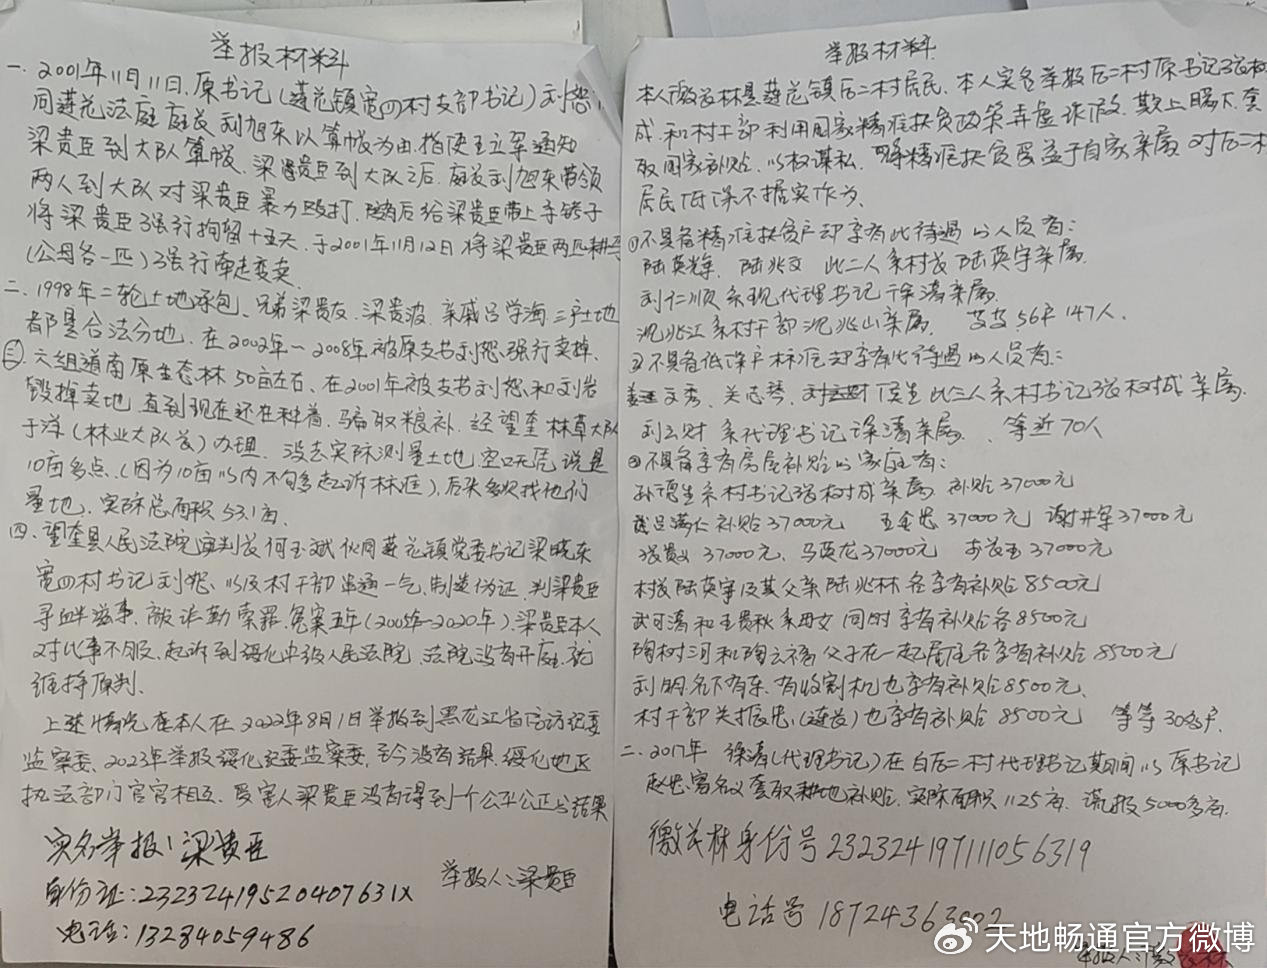 举报材料
一、2001年11月11日，原书记（莲花镇宽四村支部书记）刘恕
同莲花法庭庭长刘旭东以算帐为由，指使王立军通知
梁贵臣到大队算帐，梁贵臣到大队之后，庭长刘旭东带领
两人到大队对梁贵臣暴力殴打，随后给梁贵臣带上手铐子
将梁贵臣强行拘留十五天，于2001年11月12日将梁贵臣两匹耕马
（公母各一匹）强行牵走变卖
二、1998年二轮土地承包、兄弟梁贵友、梁贵波、亲戚吕学海三户土地
都是合法分地，在2002年—2008年被原支书刘恕强行卖掉、
三、六组道南原生态林50亩左右、在2001年被支书刘恕和刘岩
毁掉卖地，直到现在还在种着，骗取粮补，经望奎林草大队
于洋（林业大队长）办理，没去实际测量土地，空口无凭说是
10亩多点，（因为10亩以内不够起诉标准），后头多次找他们
量地，实际总面积53.1亩、
四、望奎县人民法院审判长何玉斌伙同莲花镇党委书记梁晓东
宽四村书记刘恕、以及村干部串通一气，制造伪证，判梁贵臣
寻衅滋事，敲诈勒索罪，冤案五年（2015年-2020年），梁贵臣本人
对此事不服，起诉到绥化中级人民法院，法院没有开庭，就
维持原判、
上述情况在本人在2022年8月1日举报到黑龙江省信访纪委
监察委、2023年举报绥化纪委监察委，至今没有结果，绥化地区
执法部门官官相互，受害人梁贵臣没有得到一个公平公正的结果
实名举报：梁贵臣
举报人：梁贵臣
身份证：23232419520407631X
电话：13284059486
举报材料
本人徼茂林是莲花镇后二村居民，本人实名举报后二村原书记张树
成和村干部利用国家精准扶贫政策弄虚作假，欺上瞒下，套
取国家补贴，以权谋私，将精准扶贫受益于自家亲属，对后二村
居民低保不据实作为、
①不具备精准扶贫户却享有此待遇的人员有：
陆英辉、陆兆文 此二人系村长陆英宇亲属、
刘仁顺系现代理书记徐涛亲属、
沉兆江系村干部沉兆山亲属、 等56户147人、
②不具备低保户标准却享有此待遇的人员有：
文秀、关志琴、侯生此三人系村书记张树成亲属、
刘云财 系代理书记徐涛亲属、 等近70人
③不具备享有房屋补贴的家庭有：
孙德生系村书记张树成亲属 补贴37000元
吕满仁补贴37000元 王金忠37000元 谢井军37000元
张贵 37000元、马英龙37000元 37000元
村长陆英宇及其父亲陆兆林各享有补贴8500元
武可涛和王贵秋系母女同时享有补贴各8500元
陶树河和陶云福父子在一起居住各享有补贴8500元
刘明名下有车、有收割机也享有补贴8500元、
村干部关振忠（连长）也享有补贴8500元 等等30多户
二、2017年 徐涛（代理书记）在白后二村代理书记期间以原书记
赵忠富名义套取耕地补贴，实际面积1125亩、谎报5000多亩、
徼茂林身份号232324197111056319
电话号 18724363002
举报人：徼茂林
天地畅通官方微博